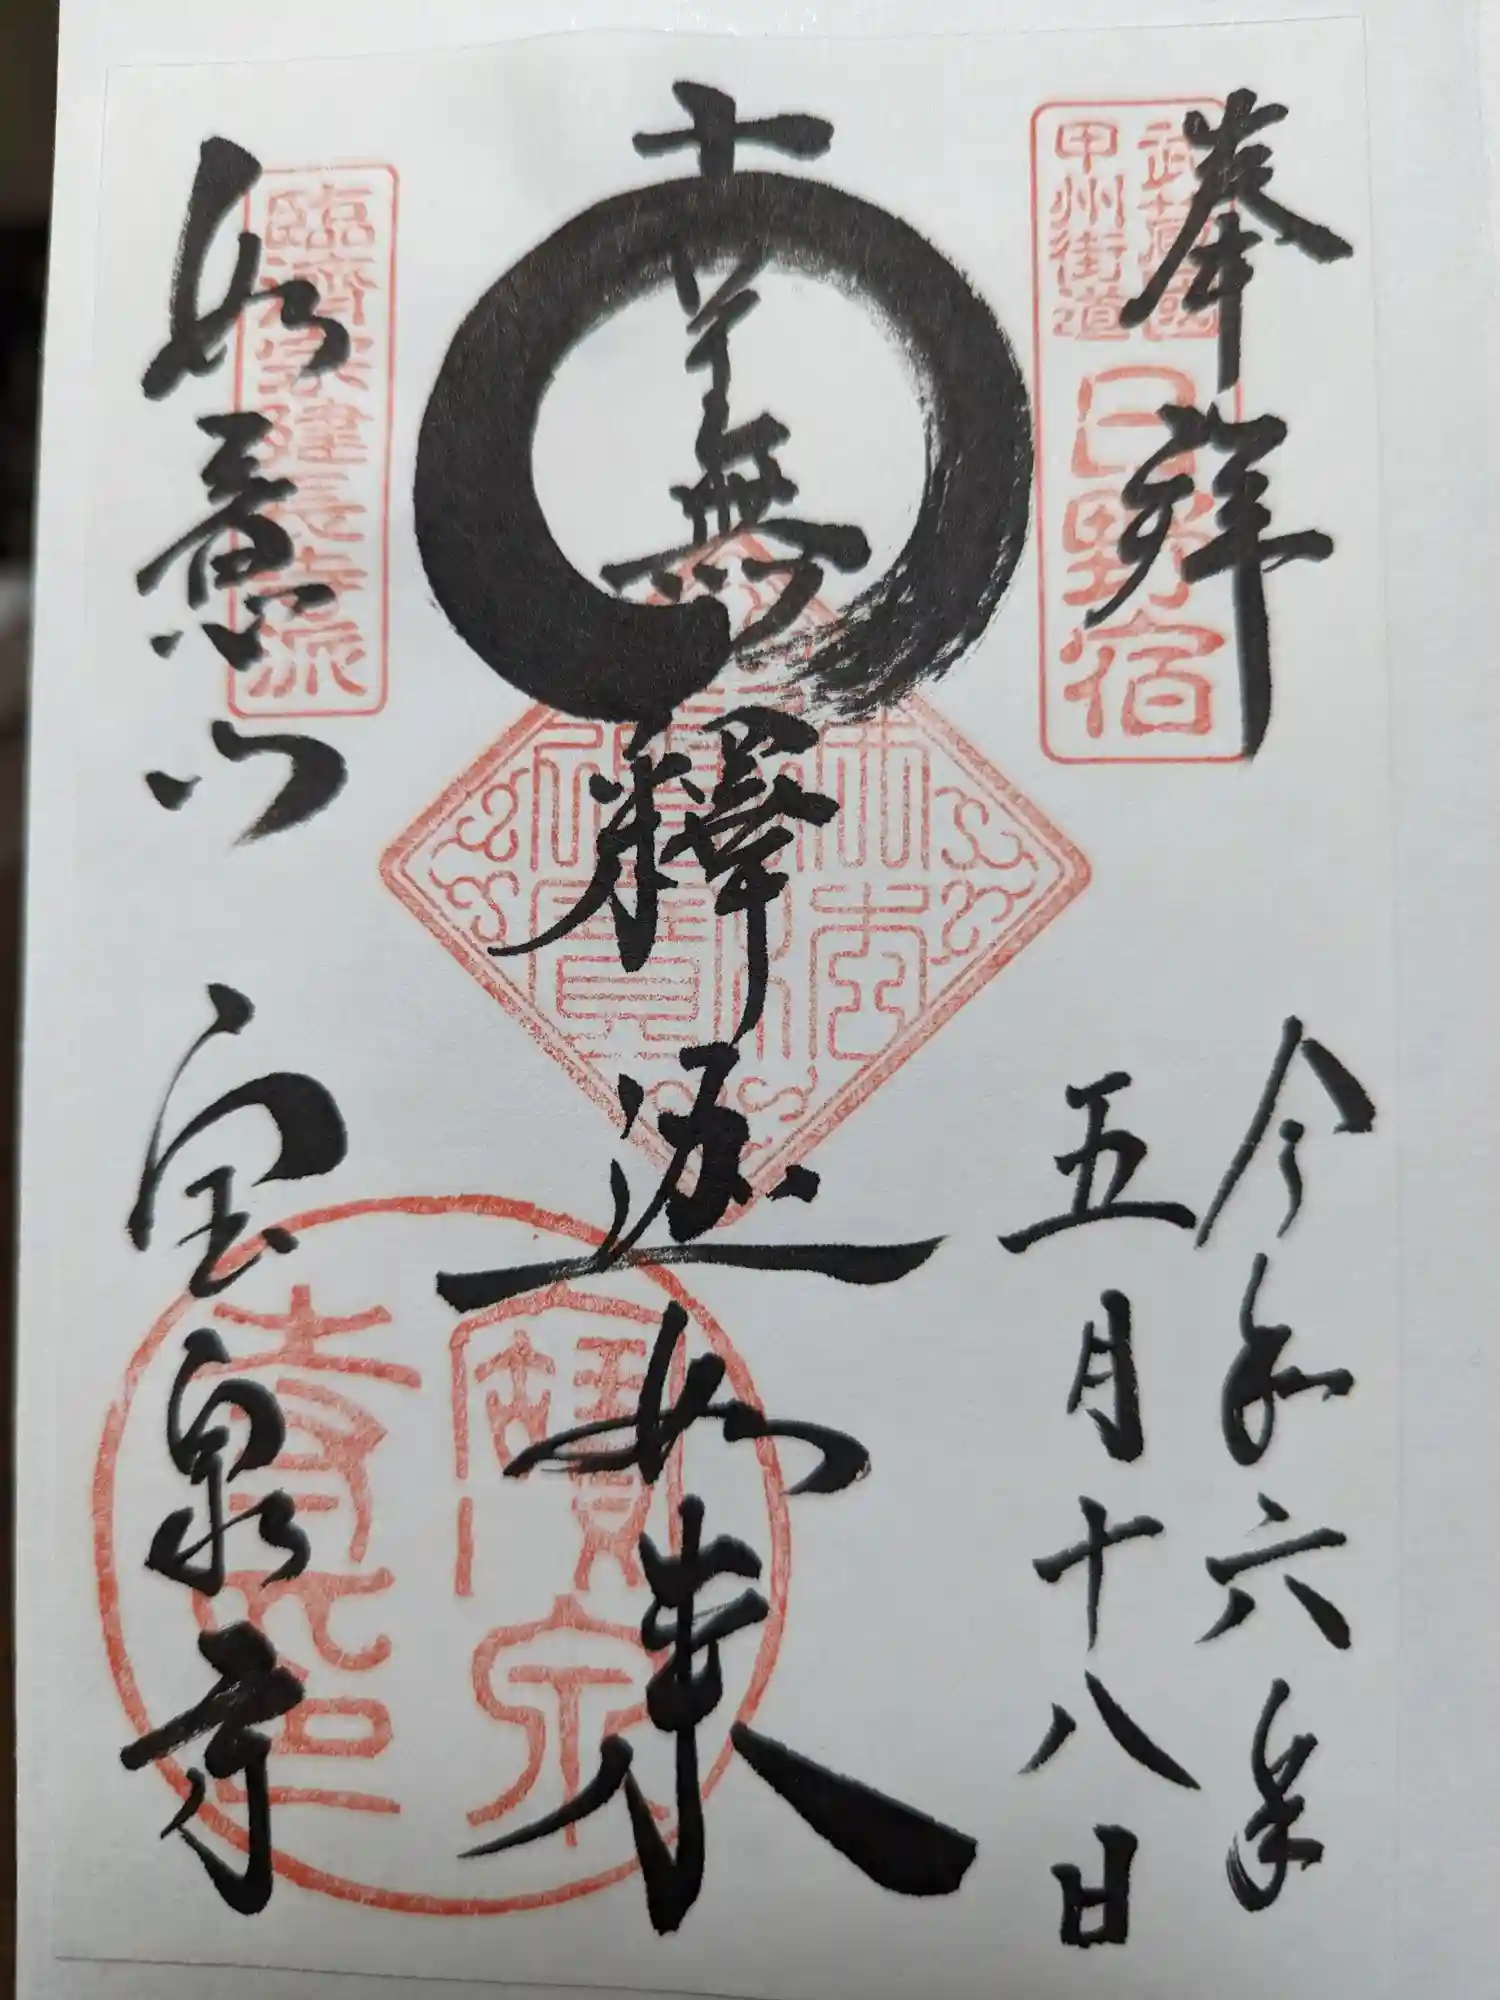 奉拝
武蔵國
甲州街道
日野宿
令和六年
五月十八日
南無釋迦如来
佛法僧寶
如意山
臨済宗建長寺派
宝泉寺
寶泉
寺印